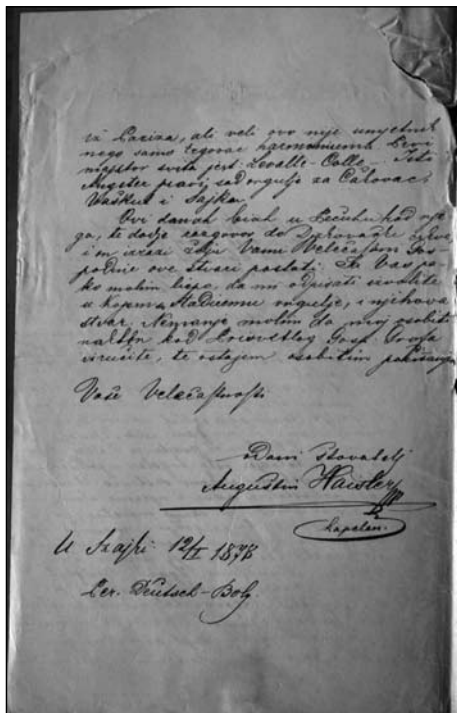 iz Pariza, ali veli ovo nije umjetnik
nego samo trgovac harmoniuma. Prvi
majstor svita jest Cavalle-Colle. Isti
Angster pravi sad orgulje za Čatovac,
Vaškut i Sajka.
Ovi danah biah u Pečuhu kod nje
ga, te dodje razgovor do Djakovačke crkve,
i m izrazi želju Vami Velečastni Gos
podine ove stvari poslati. Ja Vas ja
ko molim liepo, da mi odpisati izvolite
u kojem stadiumu orgulje, i njihova
stvar. Nemanje molim da moj osobiti
naklon kod Gosp.
izručite, te ostajem osobitim
Vaše Velečastnosti
odani štovatelj
Augustin Haisler
kapelan.
U Szajki 12/I 1878
Per. Deutsch-Boly.